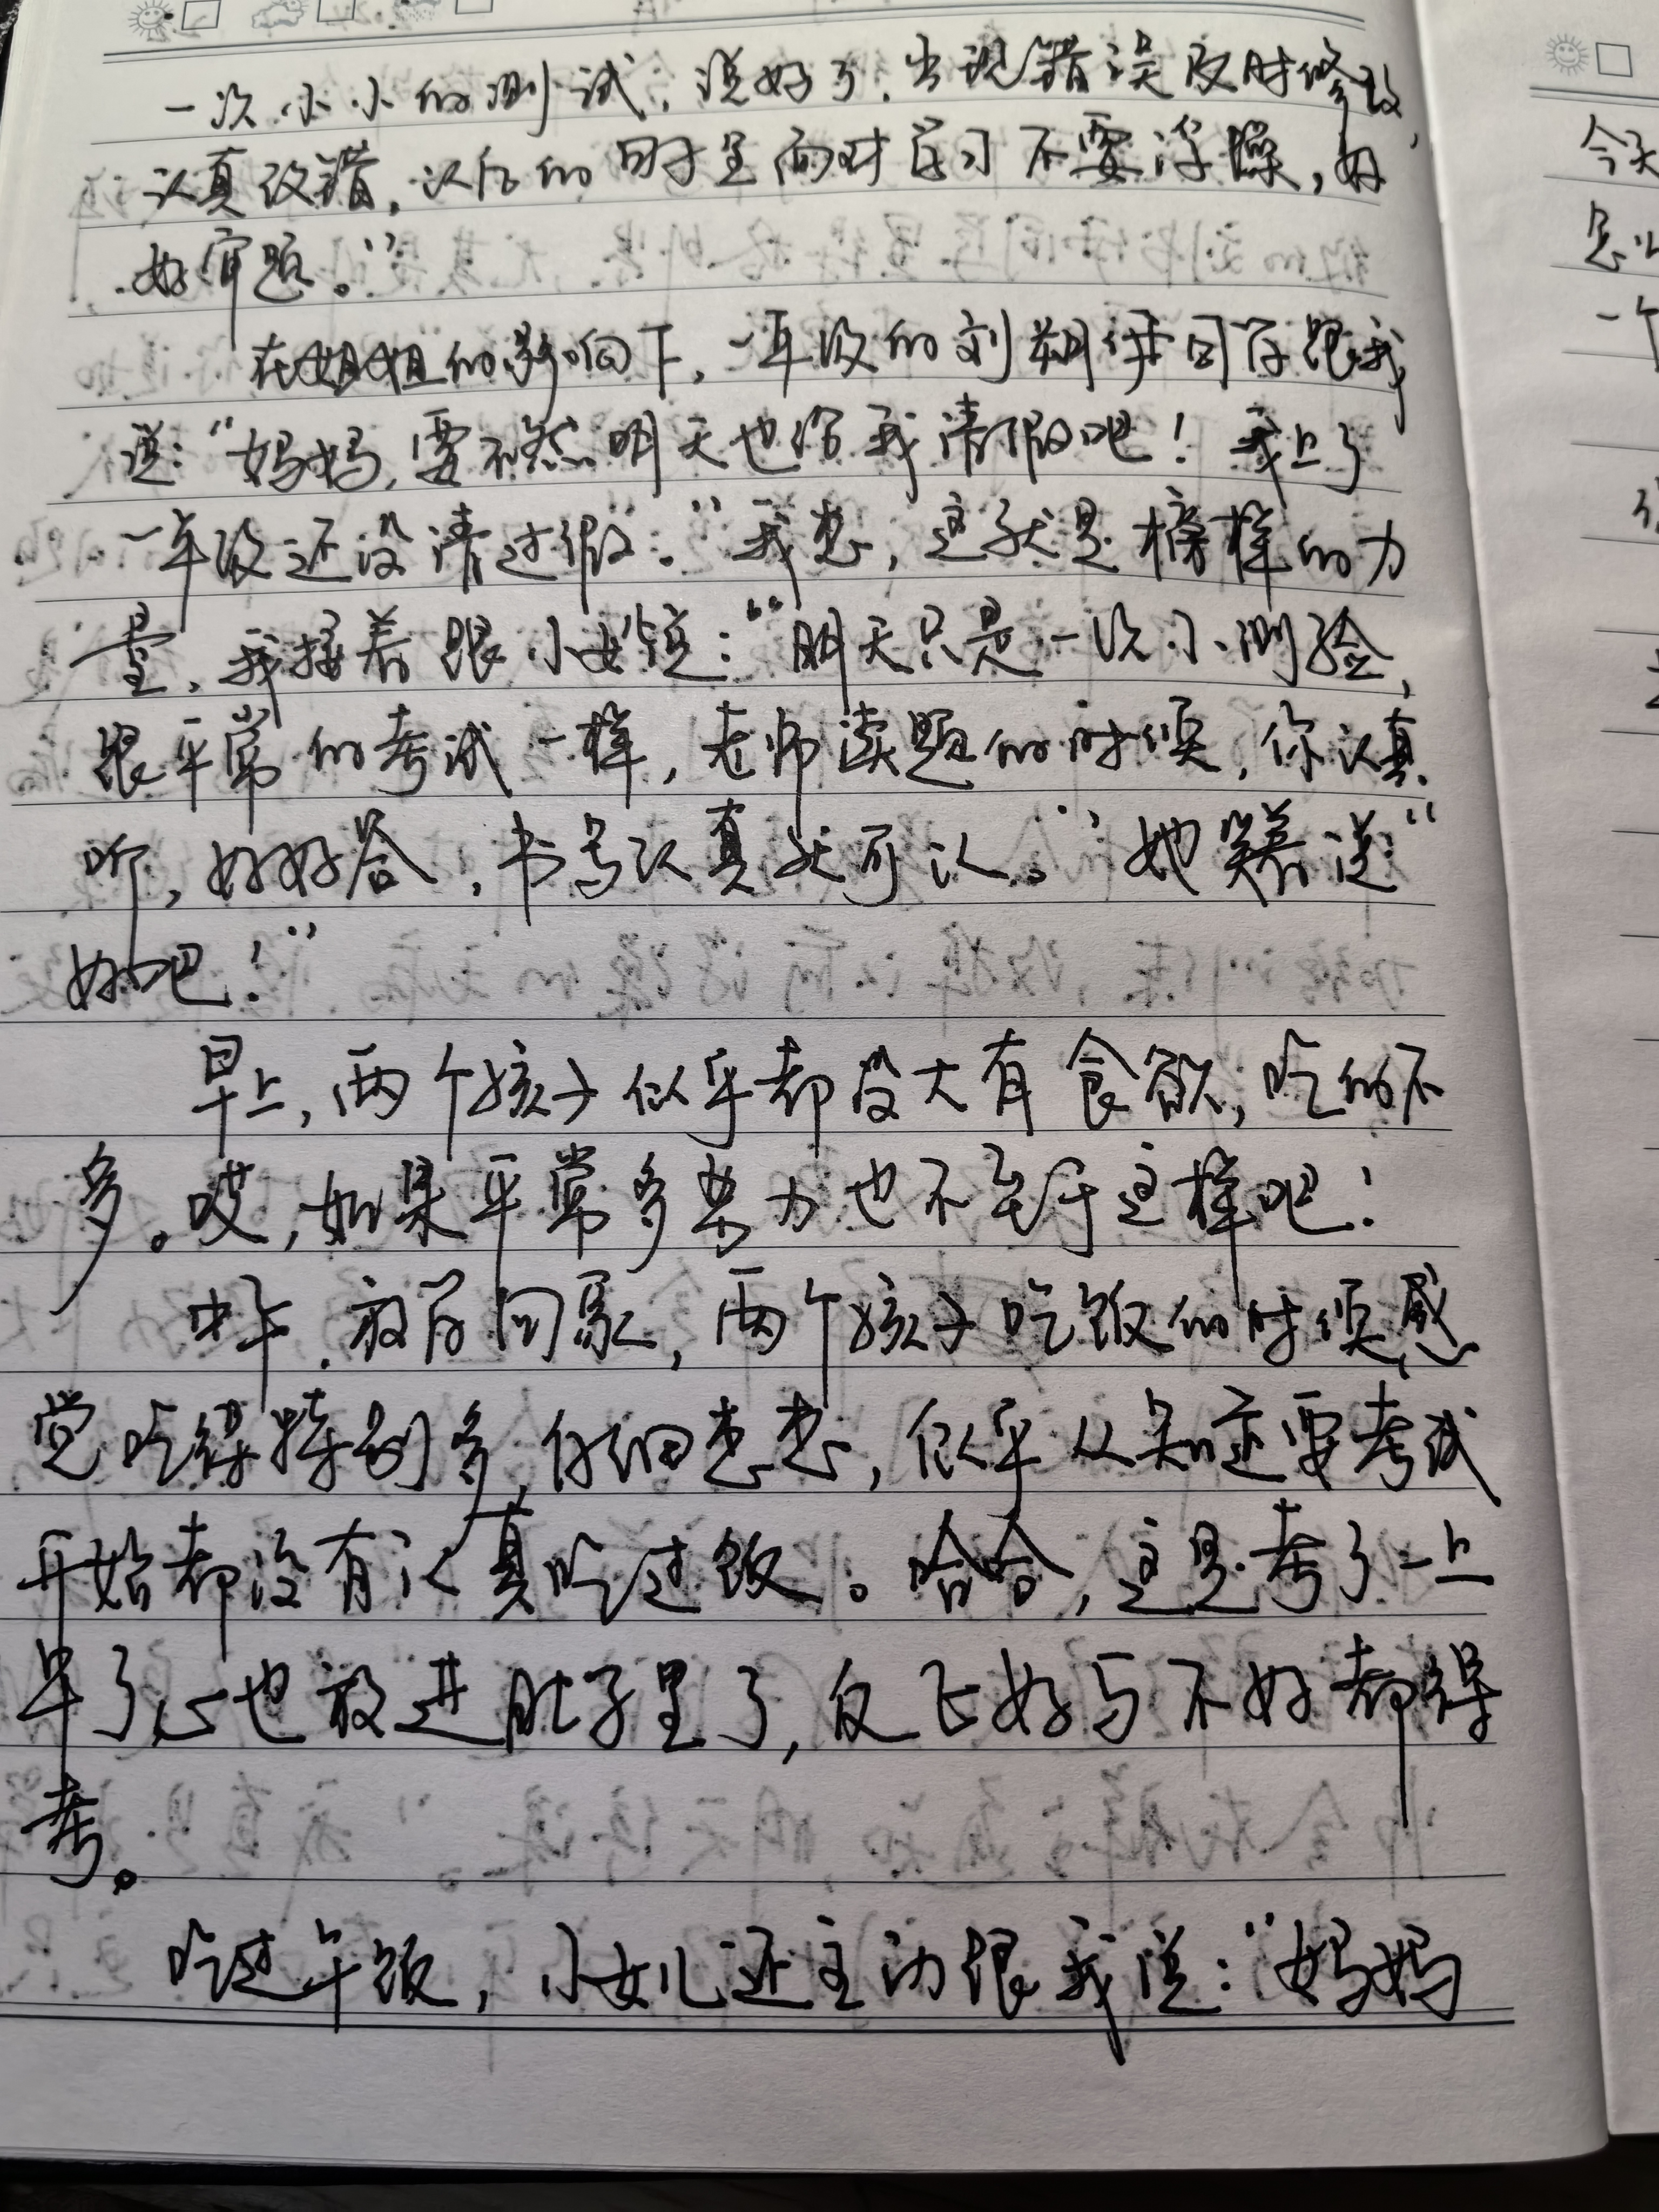 一次小小的测试，没好了，出现错误及时修改，
认真改错，以后的日子里面对学习不要浮燥，好
好审题。”
在姐姐的影响下，一年级的刘 同学跟我
说：“妈妈，要不然明天也给我请假吧！我上了
一年级还没请过假。”我想，这就是榜样的力
量，我接着跟小女说：“明天只是一次小测验，
跟平常的考试一样，老师读题的时候，你认真
听，好好答，书写认真就可以。”她笑着说“
好吧！”
早上，两个孩子似乎都没大有食欲，吃的不
多。哎，如果平常多努力也不至于这样吧！
中午，放学回家，两个孩子吃饭的时候感
觉吃得特别多，仔细想想，似乎从知道要考试
开始都没有认真吃过饭。哈哈，这是考了一上
午了心也放进肚子里了，反正好与不好都得
考。
吃过午饭，小女儿还主动跟我说：“妈妈
今天
怎么
一个